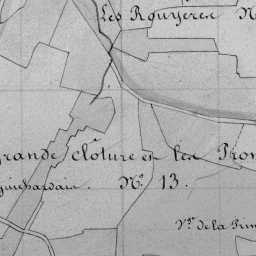 Les Rouyeres N
grande clôture et les Pron
Guichardais. N.º 13.
V.ge de la Prim